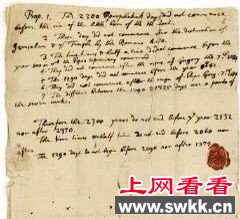 Prop. 1. The 2300 prophetick days did not commence
before the rise of the little horn of the He Goat.
2 Those day did not commence after the destruction of
Jerusalem & ye Temple by the Romans
3 The time times & half a time did not commence before the
year 800 in wch the Popes supremacy commenced
4 They did not commence after the
5 The 1290 days did not commence before the year 842.
6 They did not commence after the reign of Pope Greg. ye 7th
7 The difference between the 1290 & 1335 days are a parts of
the seven weeks.
Therefore the 2300 years do not end before ye year 2132
nor after 2370.
The time times & half time do not end before 2060 nor
after
The 1290 days do not begin before nor after 1374
上网看看
www.swkk.cn